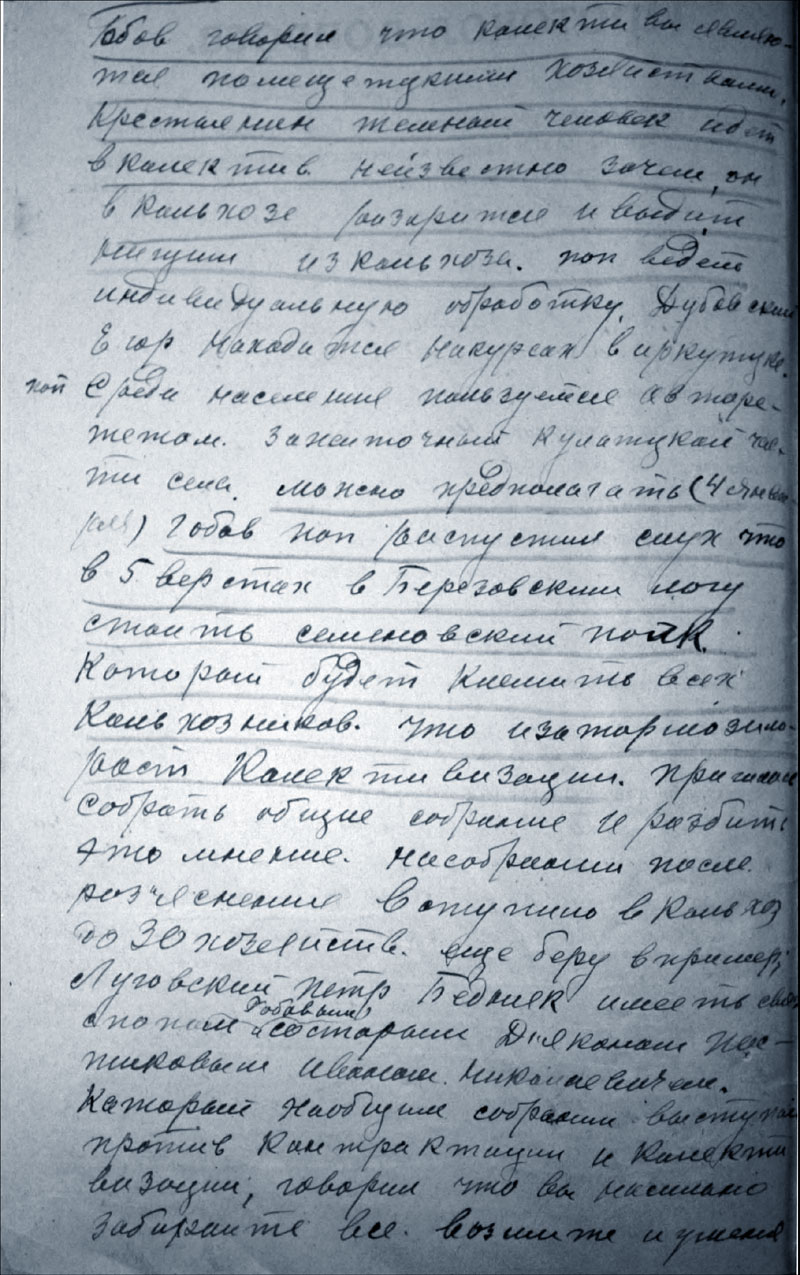 Гобов говорил что колективы являю-
тся помещетцкими хозяйствами.
Крестьянин темный человек идет
в колектив неизвестно зачем, он
в кольхозе разаритце и выдит
нищим из кольхоза. поп ведет
индивидуальную обработку. Дубовский
Егор находится накурсах в иркутцке.
поп Среди населения пользуется авторе-
тетом. Зажиточный кулатцкой час-
ти села. можно предпологать (4 янва-
ря) Гобов поп распустил слух что
в 5 верстах в Березовским логу
стоить семеновский полк.
Который будет клемить всех
Кольхозников. что изатормозило
рост Колективизации. пришлось
собрать общие собрание и разбить
это мнение. насобрании после
роз"яснения вступило в кольхоз
до 30 хозяйств. еще беру в пример,
Луговский петр Бедняк имееть связ
спопом Гобовым и состарым Дъяконом Пос-
никовым иваном. николаевичем.
Каторый наобщим собрании выступал
против контрактации и колекти
визации, говорил что вы насильно
забираите все. возмите и у меня